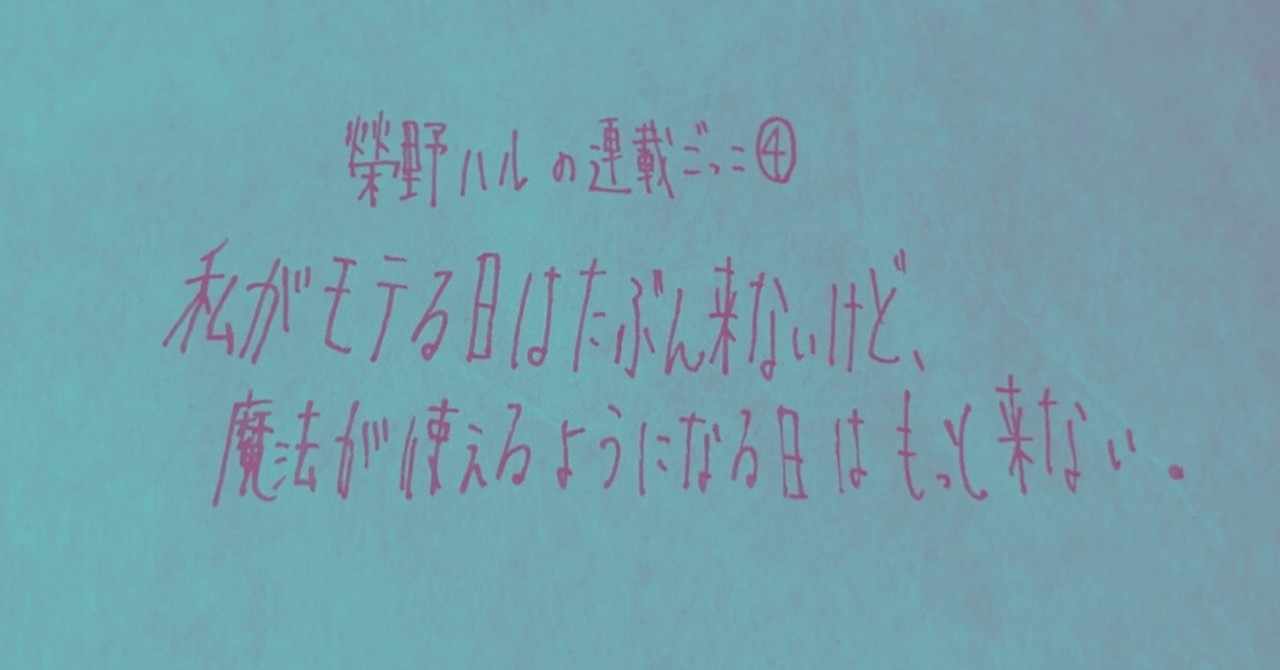 榮野ハルの連載ごっこ④
私がモテる日はたぶん来ないけど、
魔法が使えるようになる日はもっと来ない。